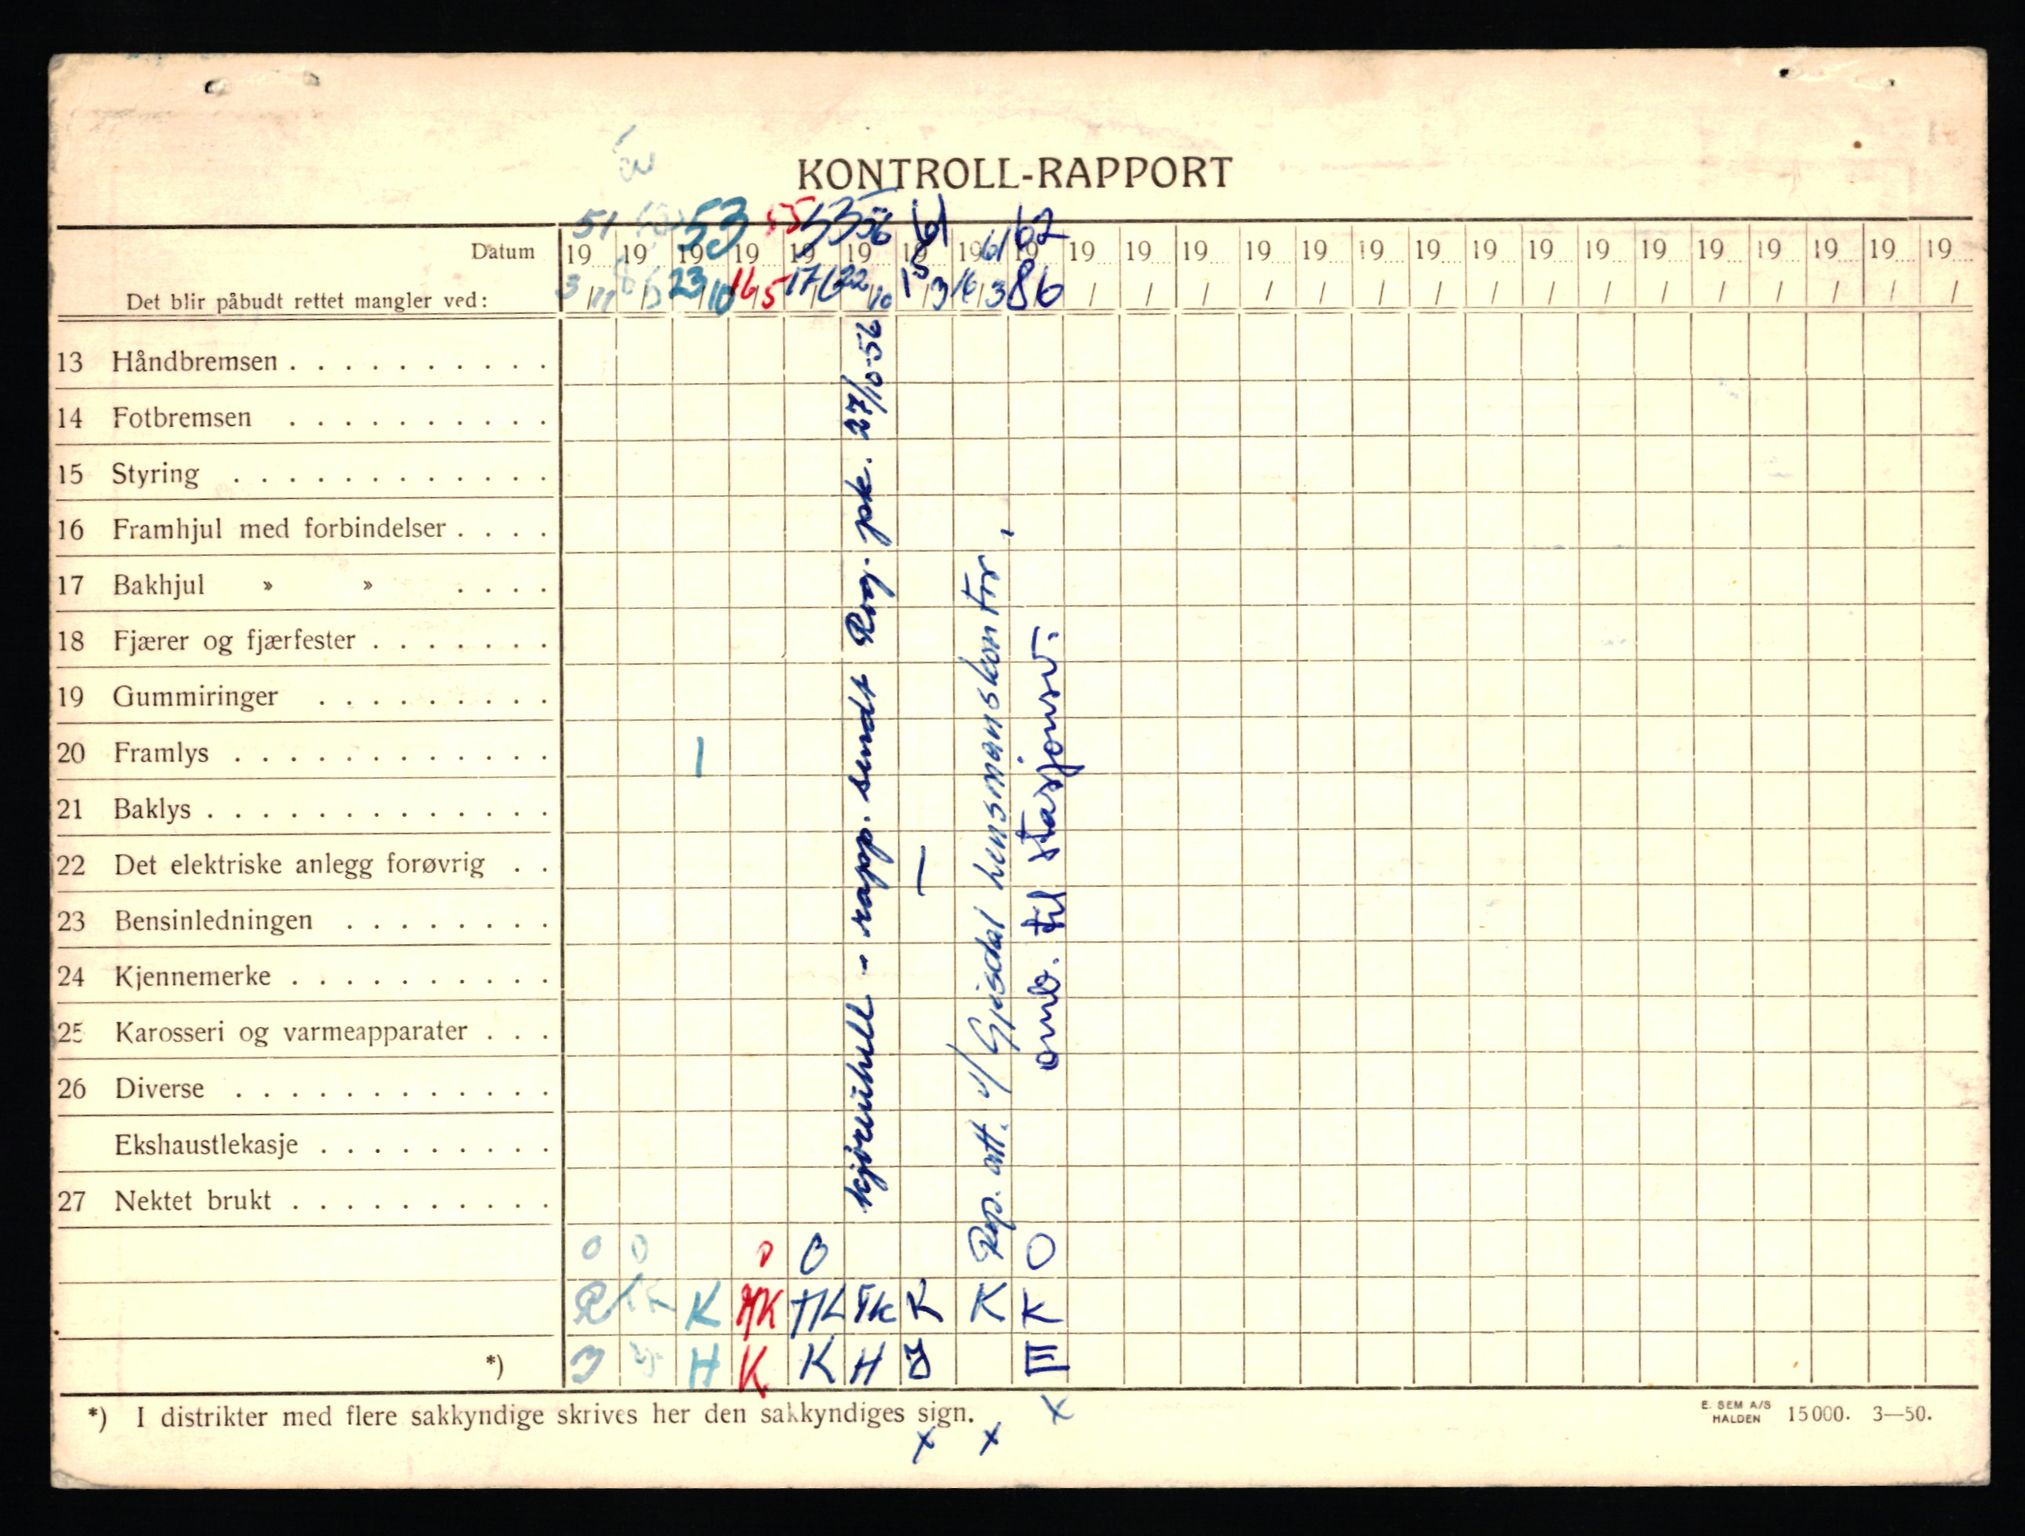 KONTROLL-RAPPORT
51 53 55 55 56 61 61 62
Datum 19 19 19 19 19 19 19 19 19 19 19 19 19 19 19 19 19 19 19 19 19 19 19 19 19
Det blir påbudt rettet mangler ved: 3/11 23/10 16/5 17/6 22/10 15/3 16/3 8/6 / / / / / / / / / / / / / / / /
13 Håndbremsen . . . . . . . . . .
14 Fotbremsen . . . . . . . . . .
15 Styring . . . . . . . . . . . .
16 Framhjul med forbindelser . . . .
17 Bakhjul » » . . . .
18 Fjærer og fjærfester . . . . . . .
19 Gummiringer . . . . . . . . .
20 Framlys . . . . . . . . . . . . |
21 Baklys . . . . . . . . . . . . .
22 Det elektriske anlegg forøvrig . . |
23 Bensinledningen . . . . . . . .
24 Kjennemerke . . . . . . . . . .
25 Karosseri og varmeapparater . . .
26 Diverse . . . . . . . . . . . .
Ekshaustlekasje . . . . . . . . .
27 Nektet brukt . . . . . . . . . .
- rapp. sendt Rog. pk. 27/10-56
Rep. att. v/ Gjesdal lensmanskontor,
omb. til stasjonsv.
0 0 0 0 0
R K HK HK K K K
*) H K K H E
*) I distrikter med flere sakkyndige skrives her den sakkyndiges sign.
x x x
E. SEM A/S
HALDEN 15000. 3—50.